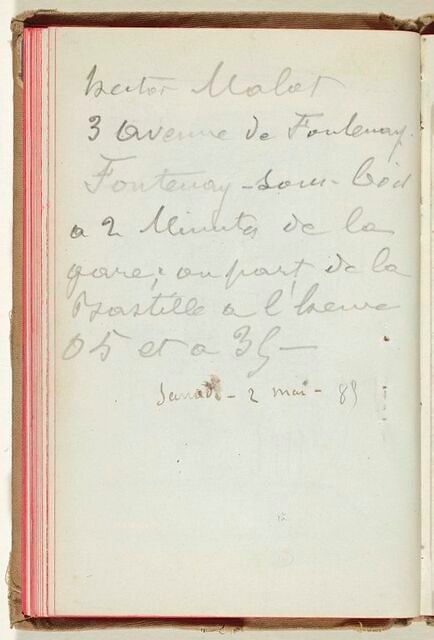 hector Malot
3 Avenue de Fontenay.
Fontenay-sous-bois
a 2 Minutes de la
gare; on part de la
Bastille a l'heure
05 et a 35 —
Samedi - 2 mai - 85